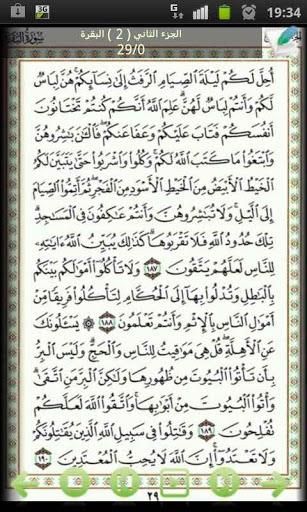 19:34
الجزء الثاني ( 2 ) البقرة
29/0
أُحِلَّ لَكُمْ لَيْلَةَ ٱلصِّيَامِ ٱلرَّفَثُ إِلَىٰ نِسَآئِكُمْ هُنَّ لِبَاسٌ
لَّكُمْ وَأَنتُمْ لِبَاسٌ لَّهُنَّ عَلِمَ ٱللَّهُ أَنَّكُمْ كُنتُمْ تَخْتَانُونَ
أَنفُسَكُمْ فَتَابَ عَلَيْكُمْ وَعَفَا عَنكُمْ فَٱلْـَٰٔنَ بَـٰشِرُوهُنَّ
وَٱبْتَغُوا۟ مَا كَتَبَ ٱللَّهُ لَكُمْ وَكُلُوا۟ وَٱشْرَبُوا۟ حَتَّىٰ يَتَبَيَّنَ لَكُمُ
ٱلْخَيْطُ ٱلْأَبْيَضُ مِنَ ٱلْخَيْطِ ٱلْأَسْوَدِ مِنَ ٱلْفَجْرِ ثُمَّ أَتِمُّوا۟ ٱلصِّيَامَ
إِلَى ٱلَّيْلِ وَلَا تُبَـٰشِرُوهُنَّ وَأَنتُمْ عَـٰكِفُونَ فِى ٱلْمَسَـٰجِدِ
تِلْكَ حُدُودُ ٱللَّهِ فَلَا تَقْرَبُوهَا كَذَٰلِكَ يُبَيِّنُ ٱللَّهُ ءَايَـٰتِهِۦ
لِلنَّاسِ لَعَلَّهُمْ يَتَّقُونَ ١٨٧ وَلَا تَأْكُلُوٓا۟ أَمْوَٰلَكُم بَيْنَكُم
بِٱلْبَـٰطِلِ وَتُدْلُوا۟ بِهَآ إِلَى ٱلْحُكَّامِ لِتَأْكُلُوا۟ فَرِيقًا مِّنْ
أَمْوَٰلِ ٱلنَّاسِ بِٱلْإِثْمِ وَأَنتُمْ تَعْلَمُونَ ١٨٨ ۞ يَسْـَٔلُونَكَ
عَنِ ٱلْأَهِلَّةِ قُلْ هِىَ مَوَٰقِيتُ لِلنَّاسِ وَٱلْحَجِّ وَلَيْسَ ٱلْبِرُّ
بِأَن تَأْتُوا۟ ٱلْبُيُوتَ مِن ظُهُورِهَا وَلَـٰكِنَّ ٱلْبِرَّ مَنِ ٱتَّقَىٰ
وَأْتُوا۟ ٱلْبُيُوتَ مِنْ أَبْوَٰبِهَا وَٱتَّقُوا۟ ٱللَّهَ لَعَلَّكُمْ
تُفْلِحُونَ ١٨٩ وَقَـٰتِلُوا۟ فِى سَبِيلِ ٱللَّهِ ٱلَّذِينَ يُقَـٰتِلُونَكُمْ
وَلَا تَعْتَدُوٓا۟ إِنَّ ٱللَّهَ لَا يُحِبُّ ٱلْمُعْتَدِينَ ١٩٠
٢٩